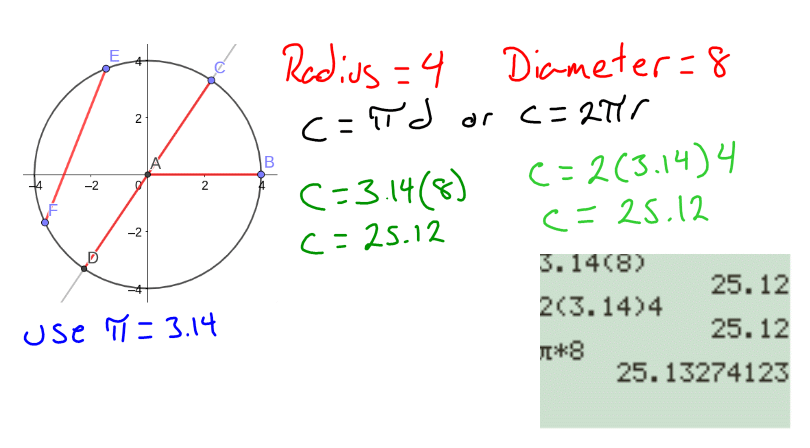 Radius = 4 Diameter = 8
C = πd or C = 2πr
C = 3.14(8)
C = 25.12
C = 2(3.14)4
C = 25.12
E
C
A
B
F
D
4
2
-4 -2 0 2 4
-2
-4
use π = 3.14
3.14(8)
25.12
2(3.14)4
25.12
π*8
25.13274123